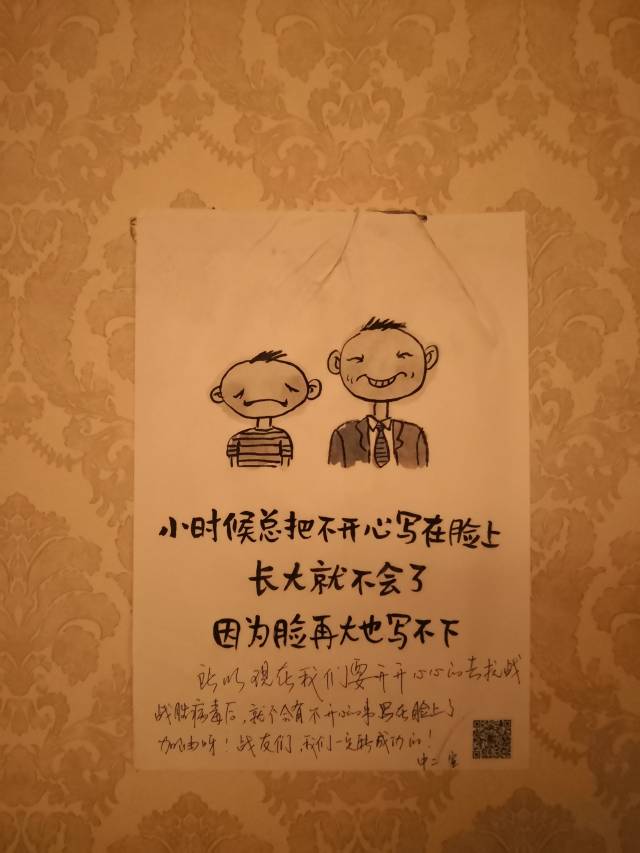 小时候总把不开心写在脸上
长大就不会了
因为脸再大也写不下
所以现在我们要开开心心的去抗战
战胜病毒后,就不会有不开心的事写在脸上了
加油呀!战友们,我们一定能成功的!
中二